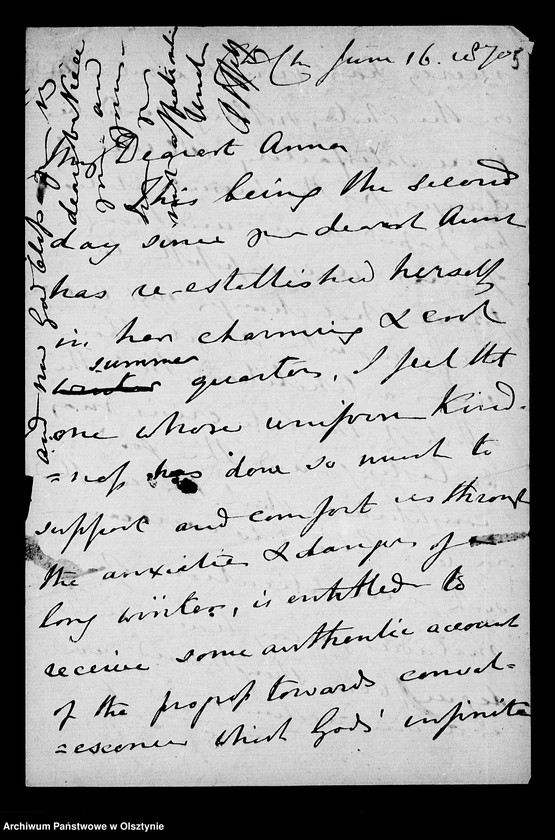 June 16. 1870
My Dearest Anna
This being the second
day since your dearest Aunt
has re-established herself
in her charming & cool
summer
winter quarters, I feel tht
one whose uniform Kind-
=ness has done so much to
support and comfort us through
the anxieties & dangers of a
long winter, is entitled to
receive some authentic account
of the progress towards conval-
=escence which Gods' infinite
and now God bless you
dearest Niece
and
affectionate
Uncle
Archiwum Państwowe w Olsztynie